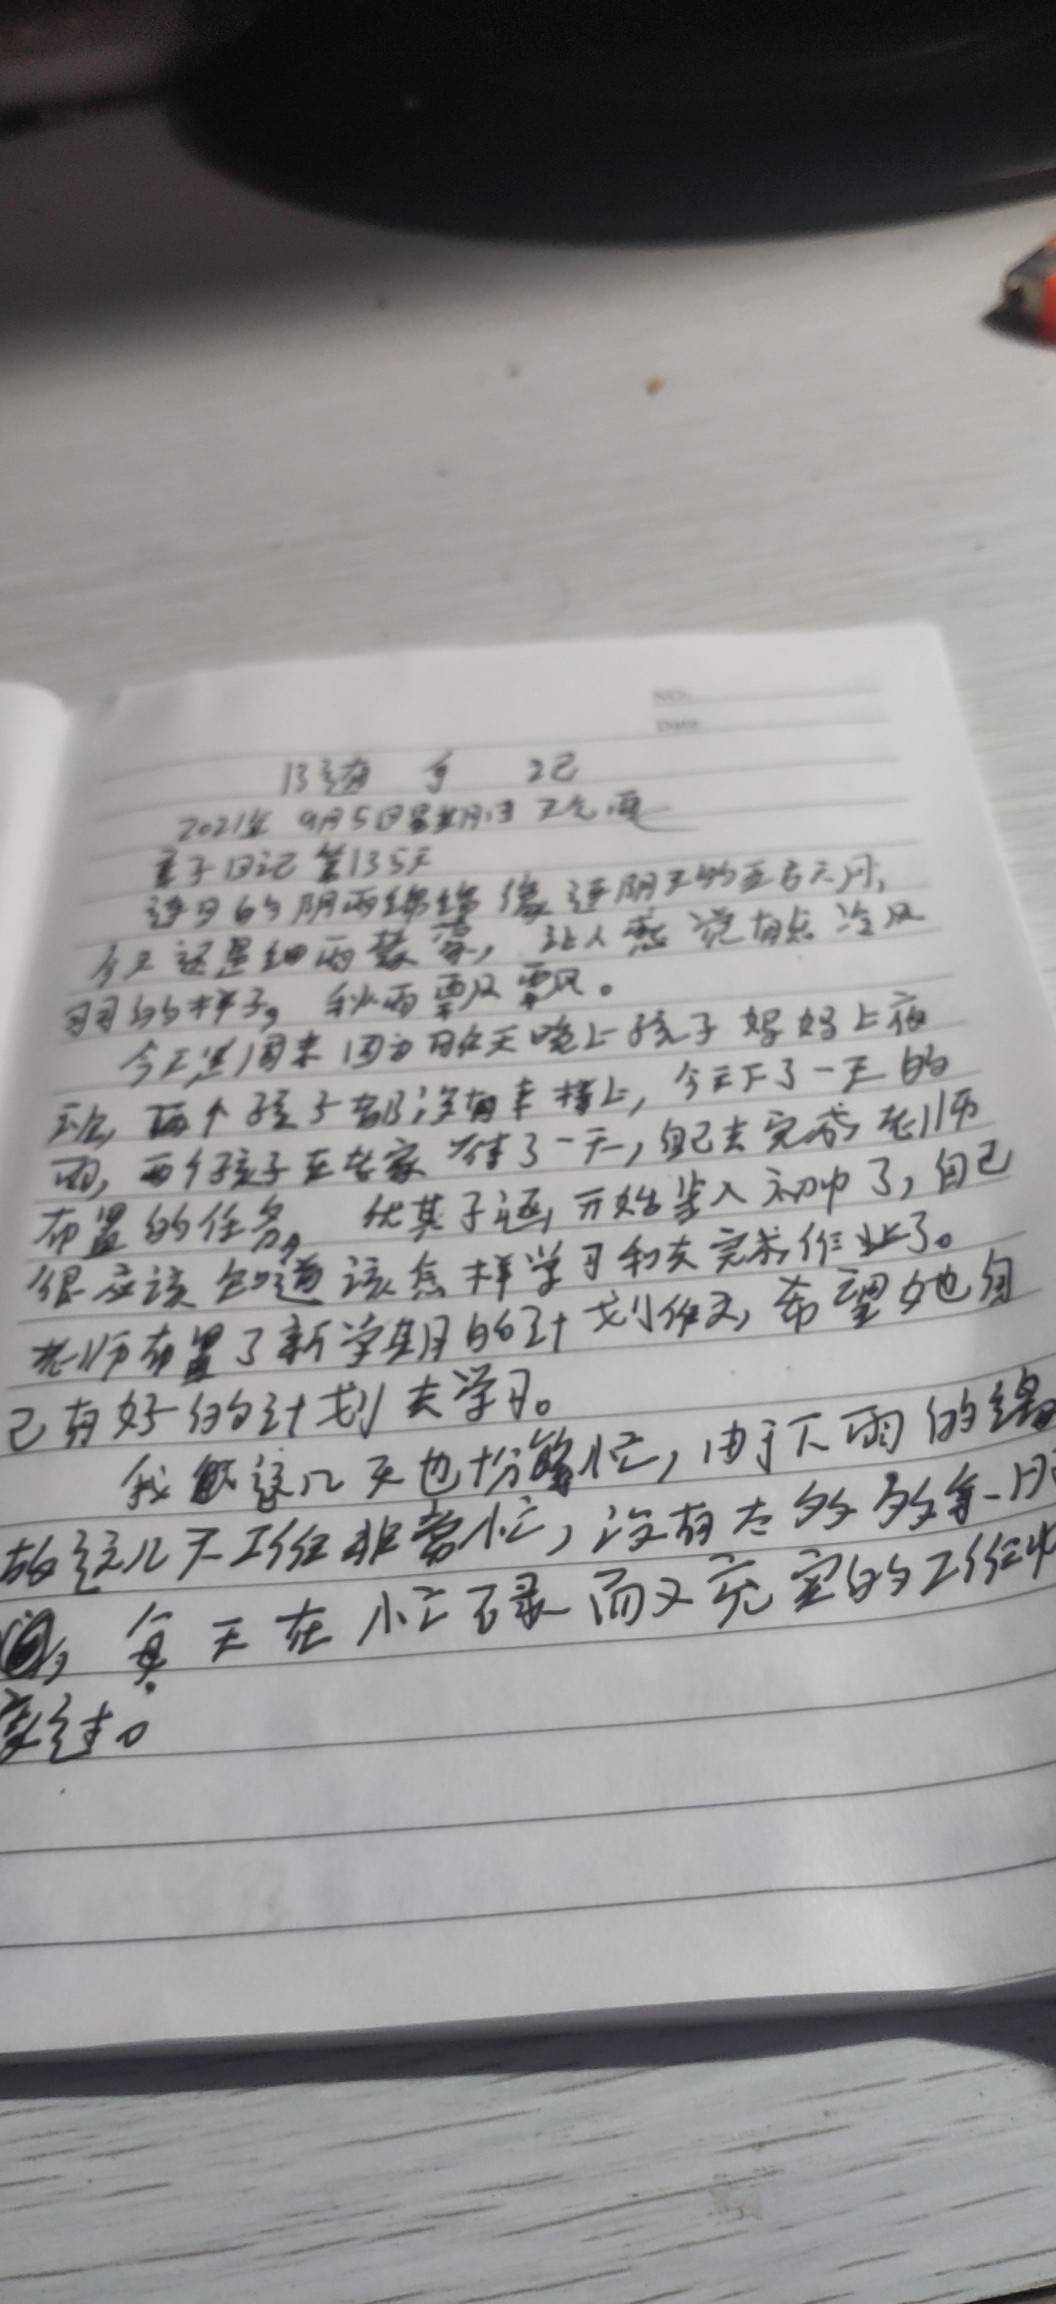 No.
Date
随 手 记
2021年 9月5日星期日 天气 雨
亲子日记 第135天
连日的阴雨绵绵 像连阴天的五六月,
今天还是细雨蒙蒙, 让人感觉有点冷风
的样子。 秋雨飘飘。
今天周末 因为昨天晚上孩子好好上夜
班, 两个孩子都没有幸福上, 今天下了一天的
雨, 两个孩子在老家待了一天, 自己去完成老师
布置的任务。 尤其子涵, 开始步入初中了, 自己
很应该知道该怎样学习和去完成作业了。
老师布置了新学期的计划作文, 希望她自
己有好的计划去学习。
我 这几天也十分繁忙, 由于下雨的缘
故这几天工作非常忙, 没有太多
, 每天在忙碌而又充实的工作中
度过。